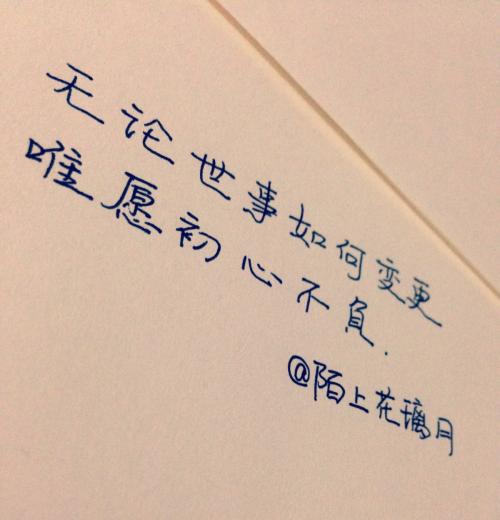 无论世事如何变更
唯愿初心不负.
@陌上花璃月